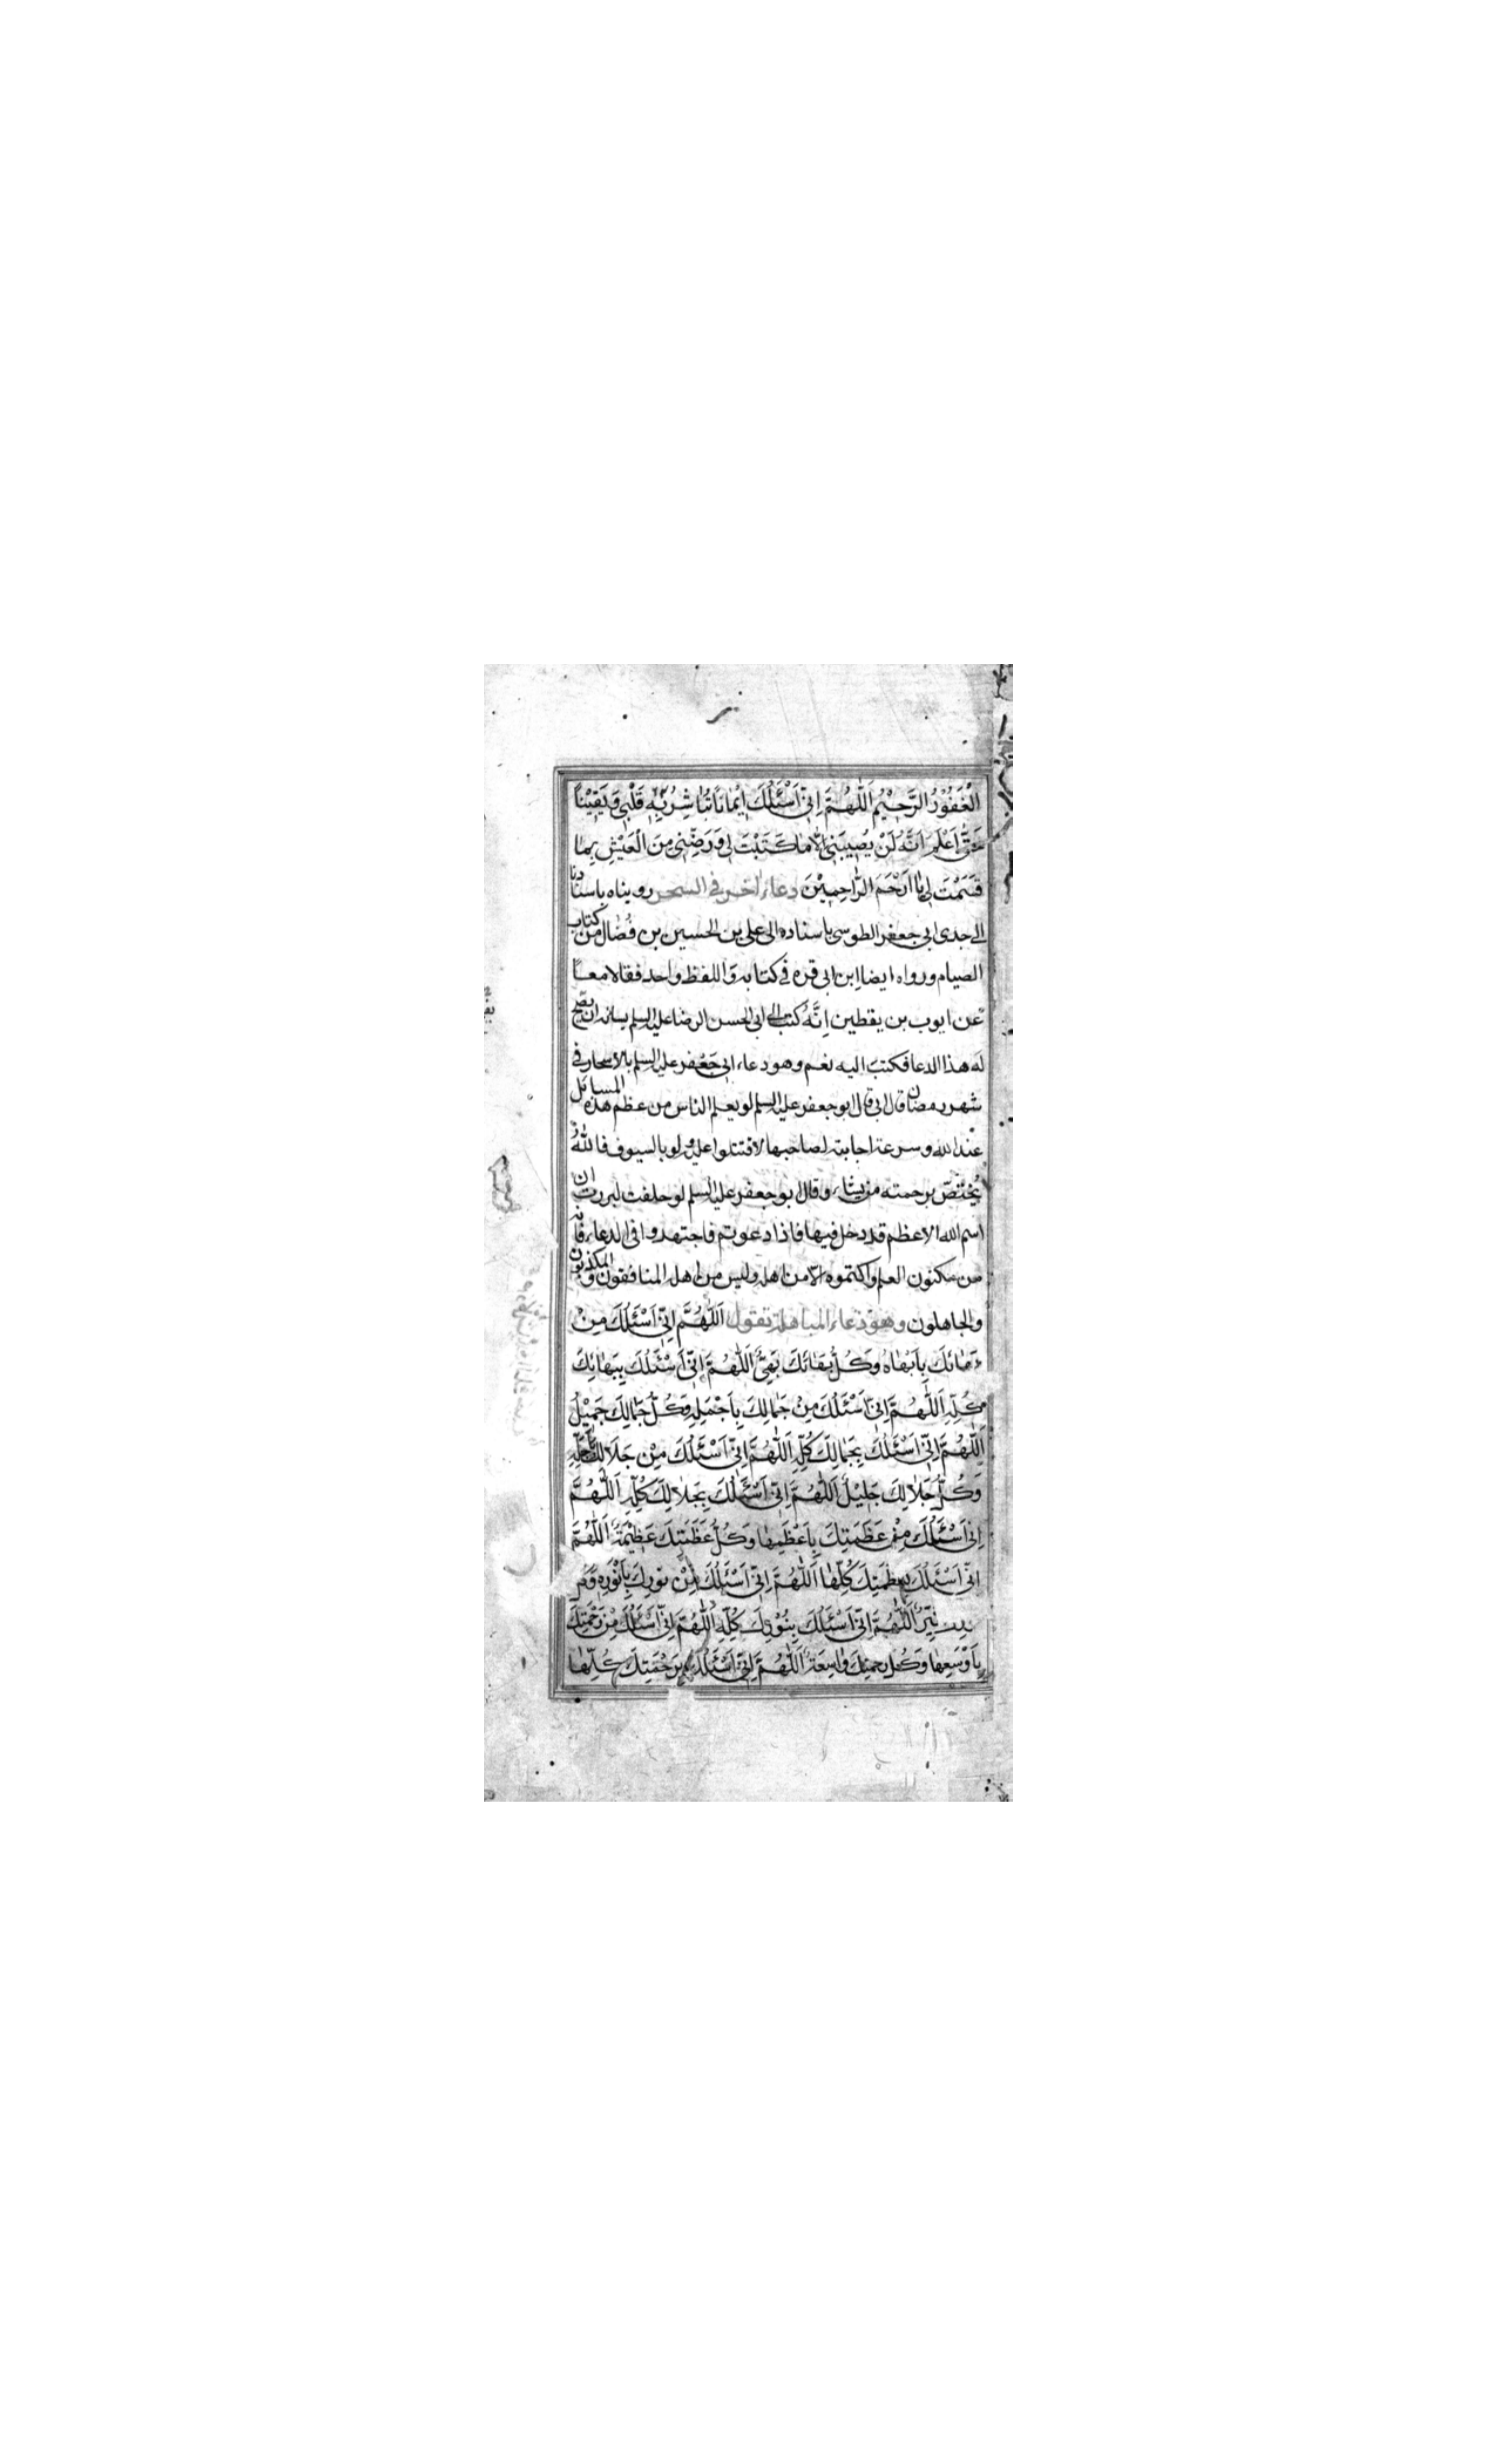 الْغَفُورُ الرَّحِيْمُ اَللّٰهُمَّ اِنّي اَسْئَلُكَ اِيْمَانًا تُبَاشِرُ بِهِ قَلْبي وَ يَقِيْنًا
حَتّٰى اَعْلَمَ اَنَّهُ لَنْ يُصِيبَنِي اِلّا مَا كَتَبْتَ لِي وَ رَضِّنِي مِنَ الْعَيْشِ بِمَا
قَسَمْتَ لِي يَا اَرْحَمَ الرَّاحِمِيْنَ دعاء اخر في السحر رويناه باسنادنا
الى جدى ابى جعفر الطوسى باسناده الى على بن الحسين بن فضال من كتاب
الصيام ورواه ايضا ابن ابى قره في كتابه و اللفظ واحد فقالا معا
عن ايوب بن يقطين انَّه كتب الى ابى الحسن الرضا عليه السلم يساله ان يصحح
له هذا الدعا فكتب اليه نعم وهو دعاء ابى جَعْفر عليه السلم بالاسحار في
شهر رمضان قال ابى قال ابو جعفر عليه السلم لو يعلم الناس من عظم هذه المسائل
عند الله و سرعة اجابته لصاحبها لاقتتلوا عليه ولو بالسيوف فالله
يختص برحمته من يشاء وقال ابو جعفر عليه السلم لو حلفت لبررت ان
اسم الله الاعظم قد دخل فيها فاذا دعوتم فاجتهدوا في الدعاء فانه
من مكنون العلم واكتموه الّا من اهله وليس من اهله المنافقون والمكذبون
والجاهلون وهو دعاء المباهلة تقول اَللّٰهُمَّ اِنّي اَسْئَلُكَ مِنْ
بَهَائِكَ بِاَبْهَاهُ وَ كُلُّ بَهَائِكَ بَهِيٌّ اَللّٰهُمَّ اِنّي اَسْئَلُكَ بِبَهَائِكَ
كُلِّهِ اَللّٰهُمَّ اِنّي اَسْئَلُكَ مِنْ جَمَالِكَ بِاَجْمَلِهِ وَ كُلُّ جَمَالِكَ جَمِيْلٌ
اَللّٰهُمَّ اِنّي اَسْئَلُكَ بِجَمَالِكَ كُلِّهِ اَللّٰهُمَّ اِنّي اَسْئَلُكَ مِنْ جَلَالِكَ بِاَجَلِّهِ
وَ كُلُّ جَلَالِكَ جَلِيْلٌ اَللّٰهُمَّ اِنّي اَسْئَلُكَ بِجَلَالِكَ كُلِّهِ اَللّٰهُمَّ
اِنّي اَسْئَلُكَ مِنْ عَظَمَتِكَ بِاَعْظَمِهَا وَ كُلُّ عَظَمَتِكَ عَظِيْمَةٌ اَللّٰهُمَّ
اِنّي اَسْئَلُكَ بِعَظَمَتِكَ كُلِّهَا اَللّٰهُمَّ اِنّي اَسْئَلُكَ مِنْ نُورِكَ بِاَنْوَرِهِ وَ
نَيِّرٌ اَللّٰهُمَّ اِنّي اَسْئَلُكَ بِنُوْرِكَ كُلِّهِ اَللّٰهُمَّ اِنّي اَسْئَلُكَ مِنْ رَحْمَتِكَ
بِاَوْسَعِهَا وَ كُلُّ رحمتِكَ وَاسِعَةٌ اَللّٰهُمَّ اِنّي اَسْئَلُكَ بِرَحْمَتِكَ كُلِّهَا